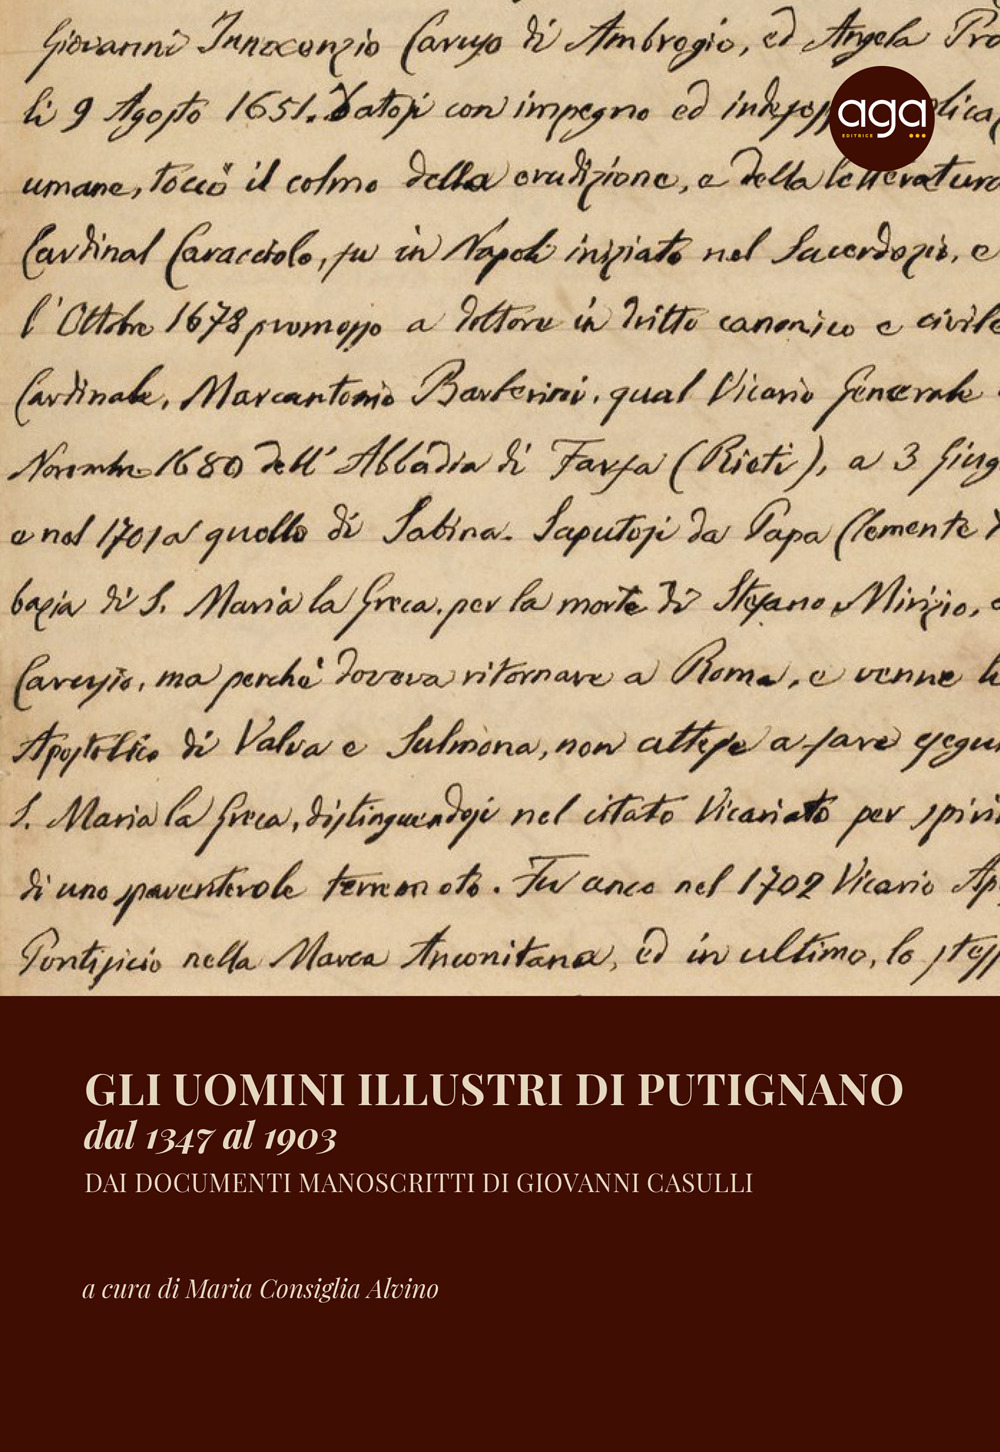 Giovanni Innocenzio Caruso di Ambrogio, ed Angela
li 9 Agosto 1651. Datosi con impegno ed
umane, toccò il colmo della erudizione, e della letteratura
Cardinal Caracciolo, fu in Napoli iniziato nel Sacerdozio, e
l' Ottobre 1678 promosso a dottore in dritto canonico e civile
Cardinale, Marcantonio Barberini, qual Vicario Generale
Novembre 1680 dell' Abbadia di Farfa (Rieti), a 3
e nel 1701 a quello di Sabina. Saputosi da Papa Clemente
bazia di S. Maria la Greca, per la morte di Stefano Mirizio,
ma perchè doveva ritornare a Roma, e venne
Apostolico di Valva e Sulmona, non attese a fare
S. Maria la Greca, distinguendosi nel citato Vicariato per
di uno spaventevole terremoto. Fu anco nel 1702 Vicario
Pontificio nella Marca Anconitana, ed in ultimo, lo
aga
EDITRICE
GLI UOMINI ILLUSTRI DI PUTIGNANO
dal 1347 al 1903
DAI DOCUMENTI MANOSCRITTI DI GIOVANNI CASULLI
a cura di Maria Consiglia Alvino